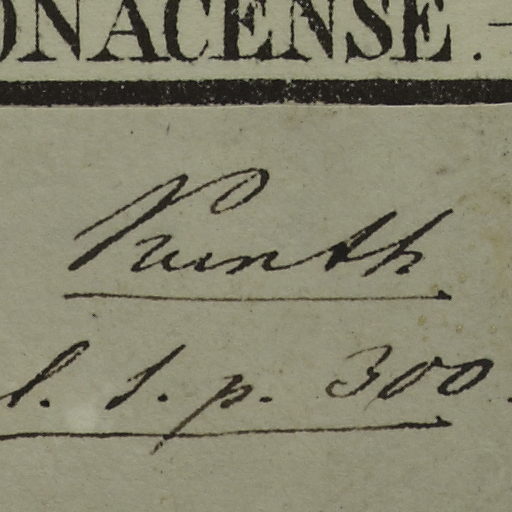 ONACENSE.
Kunth
l. 1. p. 300.